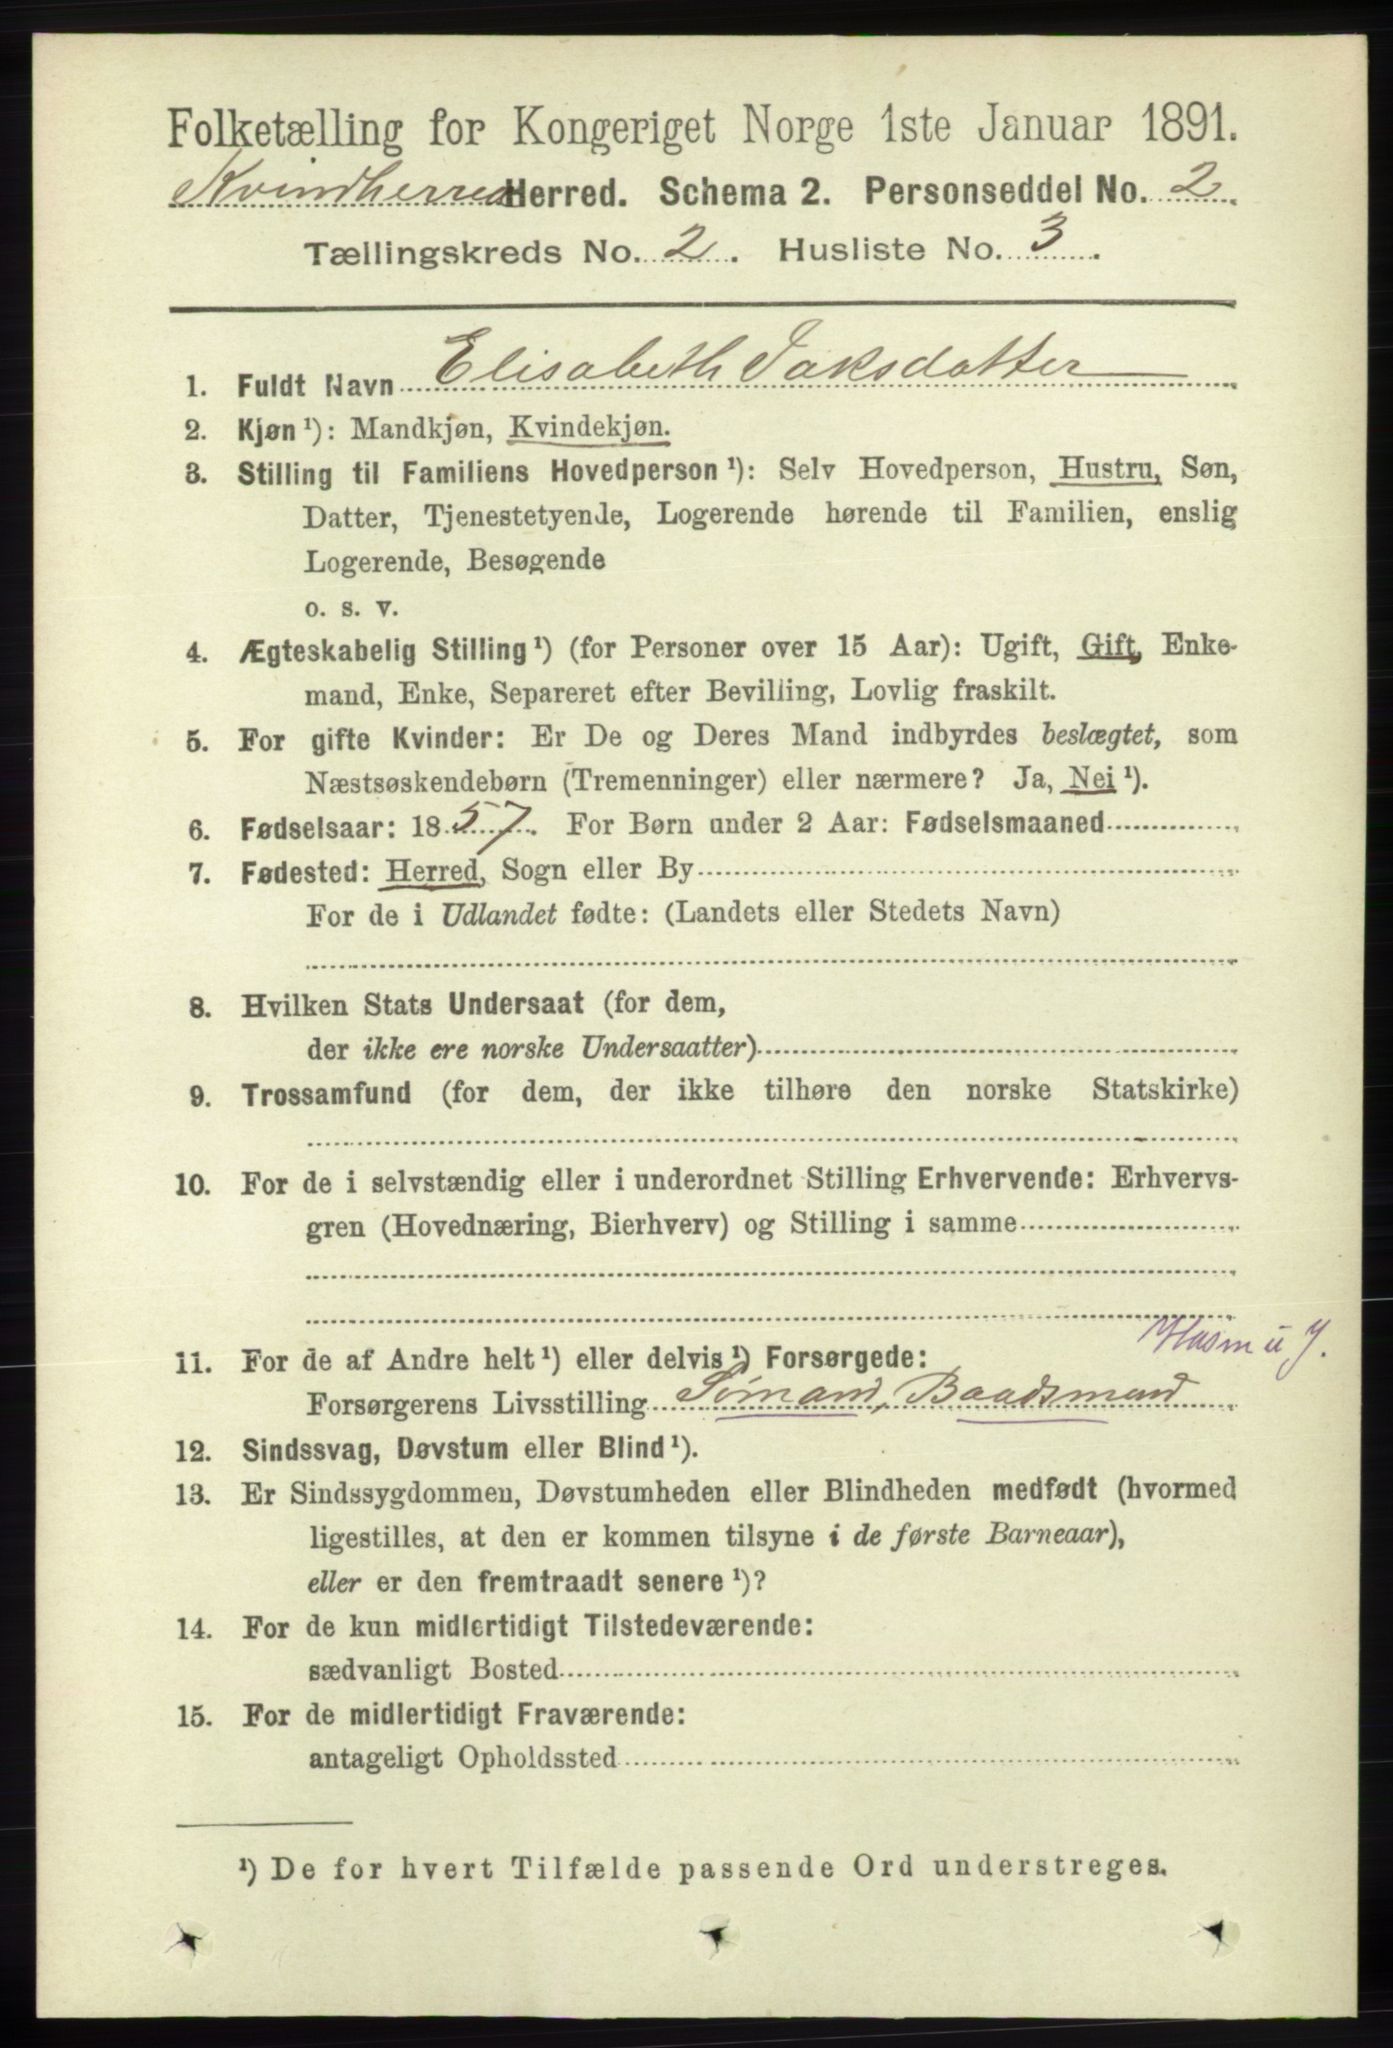 Folketælling for Kongeriget Norge 1ste Januar 1891.
Kvindherred Herred. Schema 2. Personseddel No. 2
Tællingskreds No. 2. Husliste No. 3.
1. Fuldt Navn Elisabeth Isaksdatter
2. Kjøn ¹): Mandkjøn, Kvindekjøn.
3. Stilling til Familiens Hovedperson ¹): Selv Hovedperson, Hustru, Søn,
Datter, Tjenestetyende, Logerende hørende til Familien, enslig
Logerende, Besøgende
o. s. v.
4. Ægteskabelig Stilling ¹) (for Personer over 15 Aar): Ugift, Gift, Enke-
mand, Enke, Separeret efter Bevilling, Lovlig fraskilt.
5. For gifte Kvinder: Er De og Deres Mand indbyrdes beslægtet, som
Næstsøskendebørn (Tremenninger) eller nærmere? Ja, Nei ¹).
6. Fødselsaar: 1857. For Børn under 2 Aar: Fødselsmaaned
7. Fødested: Herred, Sogn eller By
For de i Udlandet fødte: (Landets eller Stedets Navn)
8. Hvilken Stats Undersaat (for dem,
der ikke ere norske Undersaatter)
9. Trossamfund (for dem, der ikke tilhøre den norske Statskirke)
10. For de i selvstændig eller i underordnet Stilling Erhvervende: Erhvervs-
gren (Hovednæring, Bierhverv) og Stilling i samme
11. For de af Andre helt ¹) eller delvis ¹) Forsørgede:
Forsørgerens Livsstilling Sømand, Baadsmand
12. Sindssvag, Døvstum eller Blind ¹).
13. Er Sindssygdommen, Døvstumheden eller Blindheden medfødt (hvormed
ligestilles, at den er kommen tilsyne i de første Barneaar),
eller er den fremtraadt senere ¹)?
14. For de kun midlertidigt Tilstedeværende:
sædvanligt Bosted
15. For de midlertidigt Fraværende:
antageligt Opholdssted
¹) De for hvert Tilfælde passende Ord understreges.